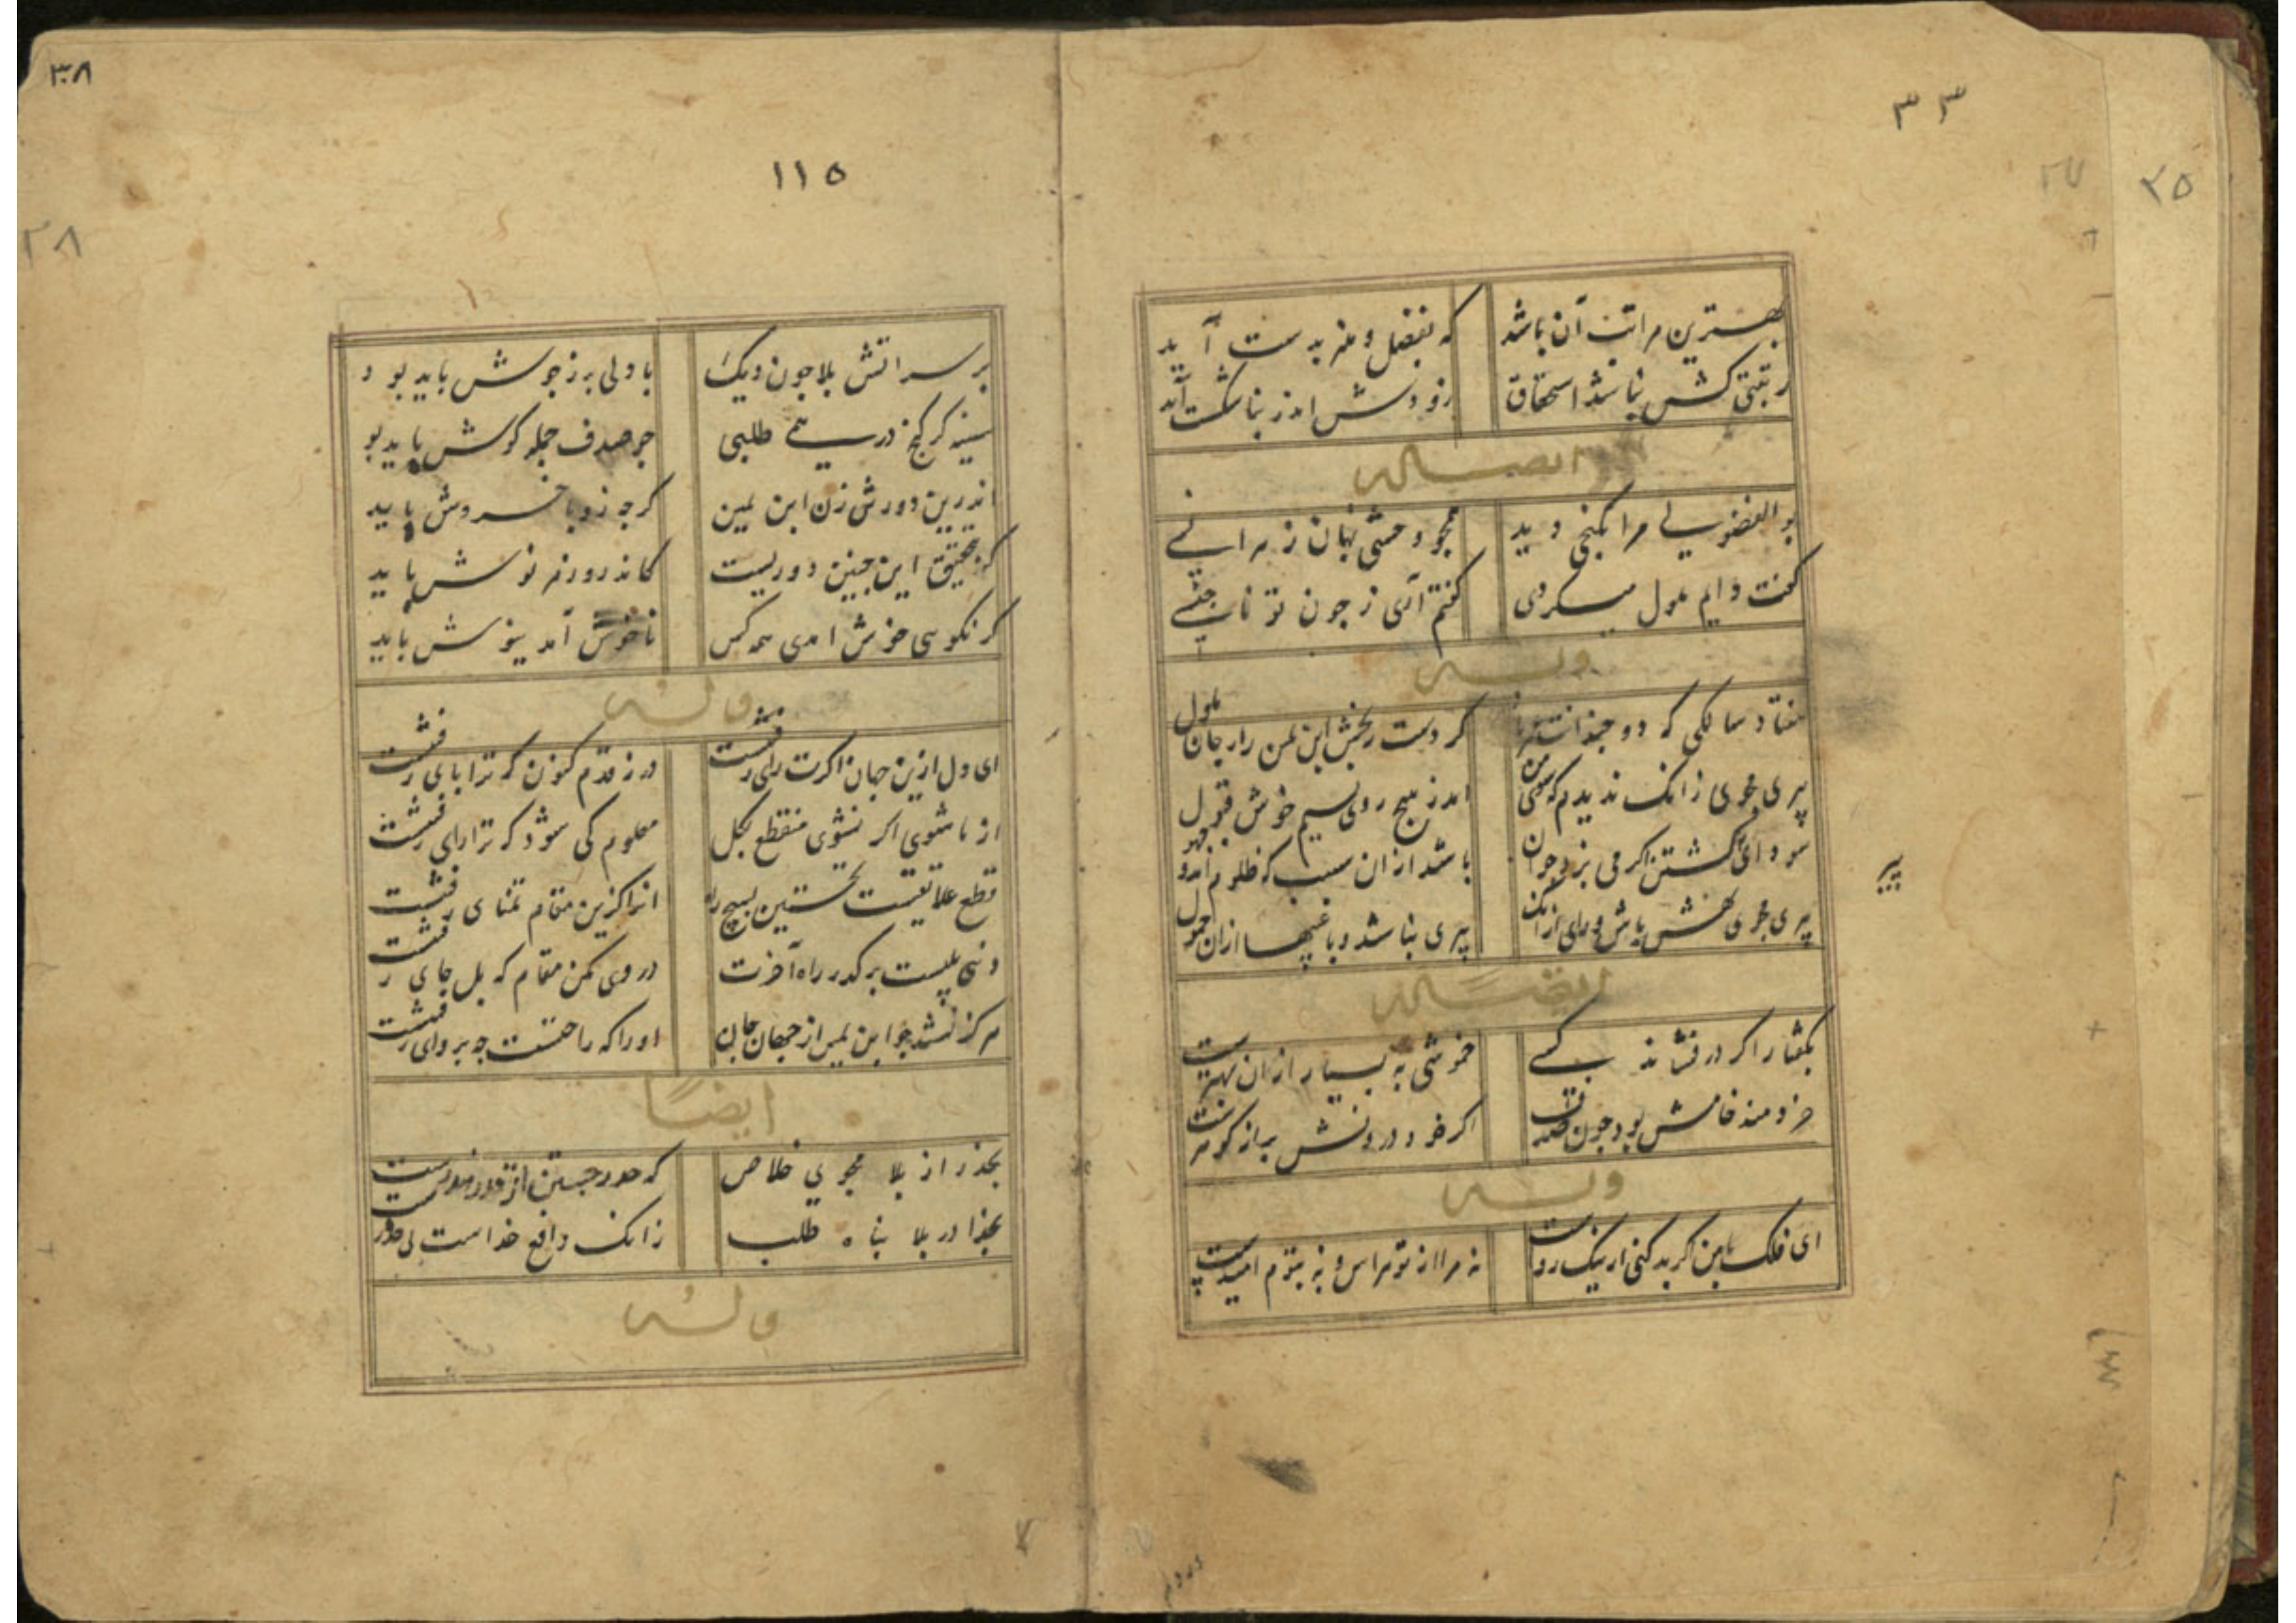 ٣٣
٢٧
٢٥
بهترین مراتب آن باشد که بفضل و هنر بدست آید
رتبتی کش نباشد استحقاق زودش اندر بنا شکست آید
ایضا له
بو الفضولی مرا بکنجی دید همچو وحشی نهان ز هر انسی
کفت دایم ملول میکردی کفتم آری ز چون تو ناجنسی
وله
هفتاد سالکی که دو چندانت عمر باد کر دست رنج ابن یمن را ز جان ملول
پیری مجوی زانک ندیدم که سوی من اندر هیچ روی نسیم خوش قبول
سودای کشتن اکر می بزد جوان باشد ازان سبب که ظلوم آمد و جهول
پیری مجوی خوش باش ورای ازانک پیری نباشد و باغیها ازان حمول
پیر
ایضا له
بکفتار اکر در فشاند کسی خموشی به بسیار ازان بهترست
خردمند خامش بود چون صدف اکر خود درونش پر از کوهرست
وله
ای فلک با من کر بد کنی ار نیک رواست نه مرا از تو هراس و نه بتوم امیدست
٣٨
١١٥
٢٨
بر سر اتش بلا جون دیک با دلی پر ز جوش باید بود
سینه کر کنج در همی طلبی جو صدف جمله کوش باید بو
اندرین دور ش زن ابن یمین کرجه زو با خروش باید
کز تحقیق این جنین دوریست کاندرو زهر نوش باید
کر نکویی خوش امدی همه کس ناخوش آمد بنوش باید
وله
ای دل ازین جهان اکرت رای رفتنست در نه قدم کنون کر ترا پای رفتنست
از ما شوی اکر نشوی منقطع بکل معلوم کی شود که ترا رای رفتنست
قطع علایقست نخستین بسیج راه انرا کزین مقام تمنای رفتنست
دنیی پلیست بر کذر راه آخرت در وی مکن مقام که پل جای رفتنست
هرکز نشد چو ابن یمین از جهان جان اورا که راحتست چه پروای رفتنست
ایضًا
بحذر از بلا مجوی خلاص که حذر جستن از قدر نه درست
بخدا در بلا پناه طلب زانک دافع خداست نی حذرست
وله